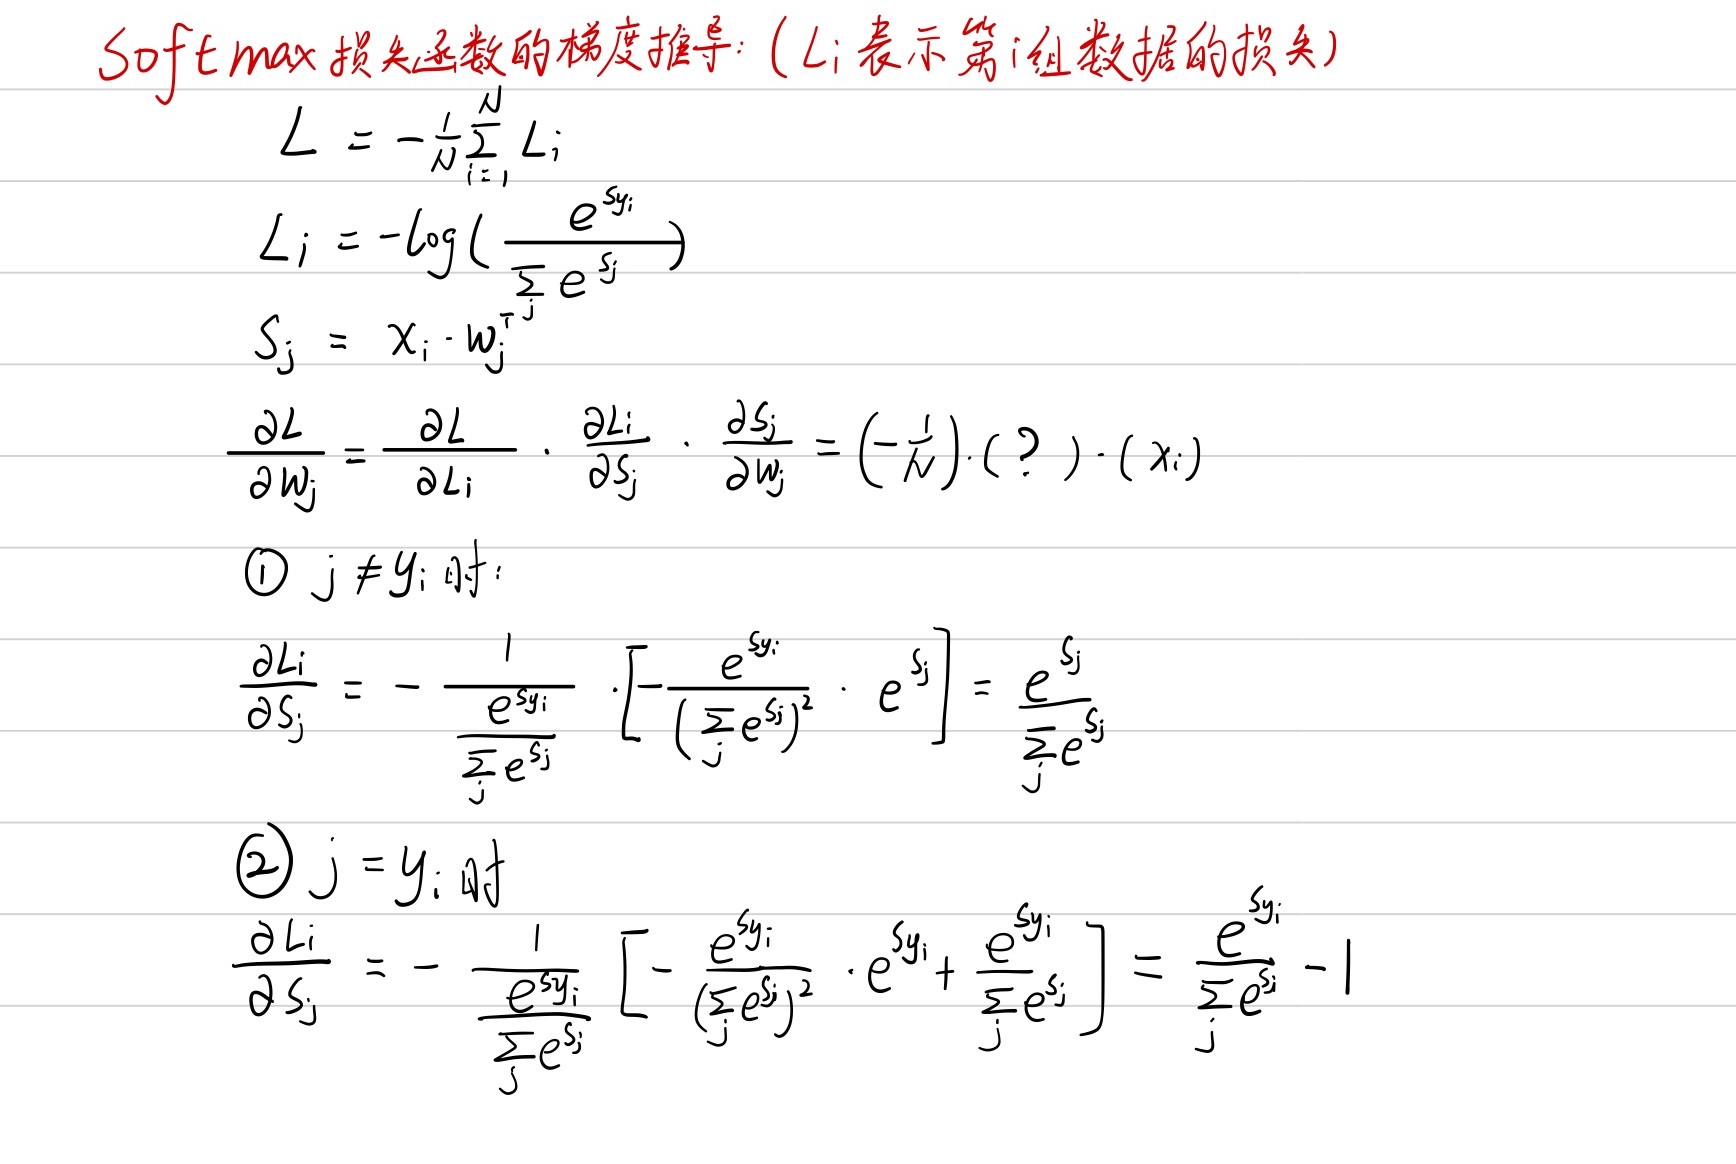 Softmax损失函数的梯度推导:(Li表示第i组数据的损失)
L = -\frac{1}{N}\sum_{i=1}^{N} L_i
L_i = -log(\frac{e^{s_{y_i}}}{\sum_j e^{s_j}})
S_j = x_i · w_j^T
\frac{∂L}{∂w_j} = \frac{∂L}{∂L_i} · \frac{∂L_i}{∂S_j} · \frac{∂S_j}{∂w_j} = (-\frac{1}{N})·(?)·(x_i)
① j≠y_i时:
\frac{∂L_i}{∂S_j} = -\frac{1}{\frac{e^{s_{y_i}}}{\sum_j e^{s_j}}} · [-\frac{e^{s_{y_i}}}{(\sum_j e^{s_j})^2} · e^{s_j}] = \frac{e^{s_j}}{\sum_j e^{s_j}}
② j=y_i时
\frac{∂L_i}{∂S_j} = -\frac{1}{\frac{e^{s_{y_i}}}{\sum_j e^{s_j}}} [-\frac{e^{s_{y_i}}}{(\sum_j e^{s_j})^2} · e^{s_{y_i}} + \frac{e^{s_{y_i}}}{\sum_j e^{s_j}}] = \frac{e^{s_{y_i}}}{\sum_j e^{s_j}} - 1